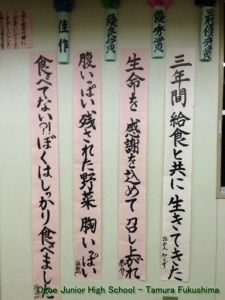 最優秀賞
三年間 給食と共に 生きてきた
優秀賞
生命を 感謝を込めて 召し上がれ
優秀賞
腹いっぱい 残された野菜 胸いっぱい
佳作
食べてない?!ぼくはしっかり食べました
Ogoe Junior High School - Tamura Fukushima